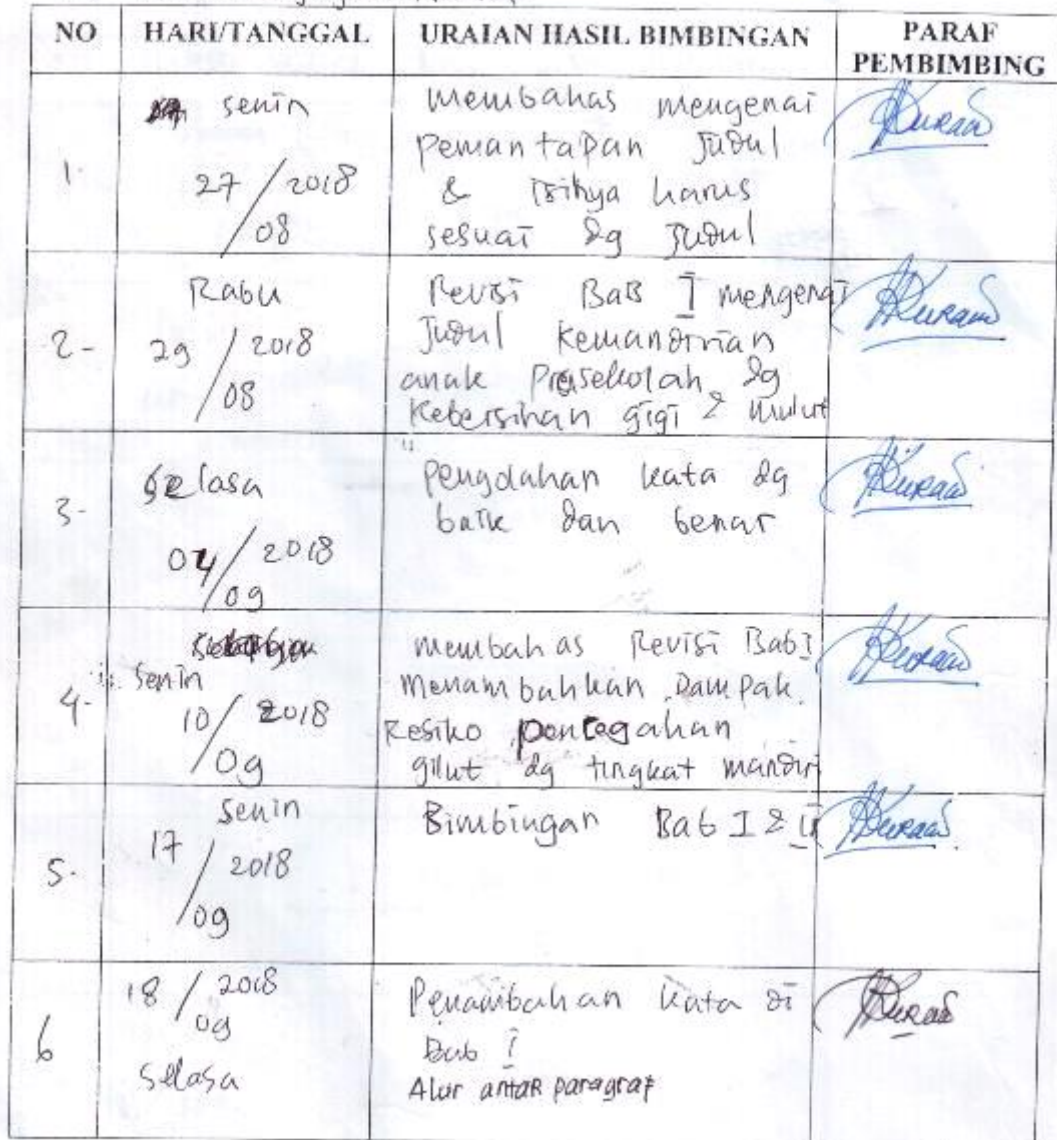 NO HARI/TANGGAL URAIAN HASIL BIMBINGAN PARAF PEMBIMBING
1. senin
27/08 2018
membahas mengenai
pemantapan Judul
& isinya harus
sesuai dg Judul
2- Rabu
29/08 2018
Revisi Bab I mengenai
Judul kemandirian
anak Prasekolah dg
Kebersihan gigi & mulut
3- Selasa
04/09 2018
Pengolahan kata dg
baik dan benar
4- Senin
10/09 2018
membahas Revisi Bab I
menambahkan Dampak
Resiko pencegahan
gilut dg tingkat mandiri
5- Senin
17/09 2018
Bimbingan Bab I & II
6 18/09 2018
Selasa
Penambahan kata di
Bab I
Alur antar paragraf